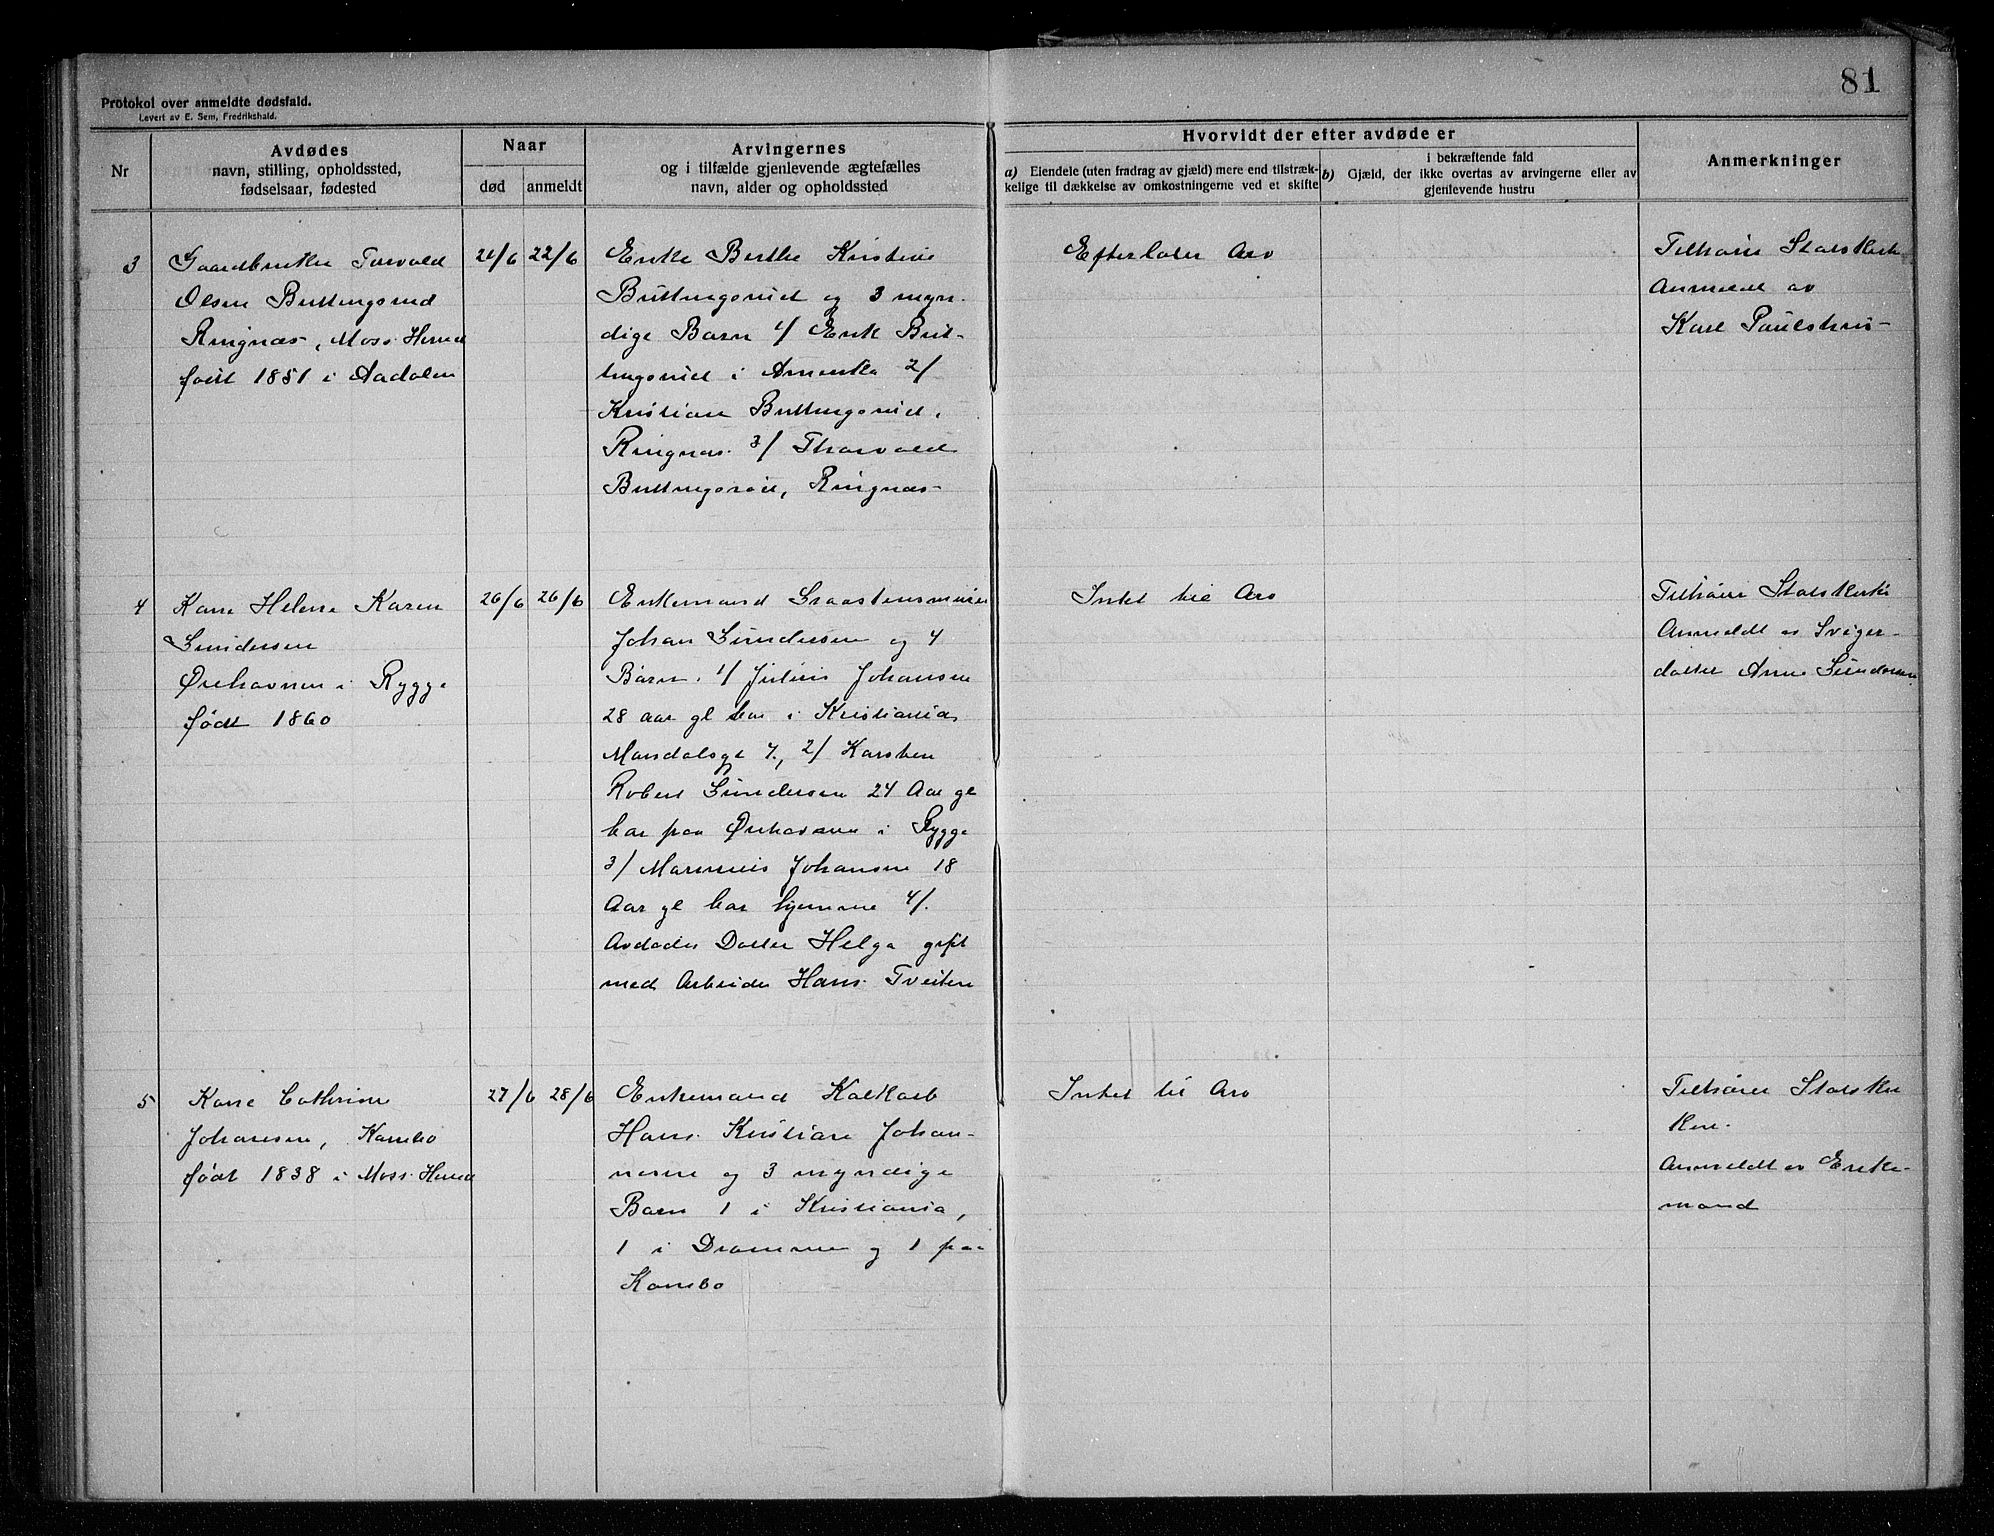 81
Protokol over anmeldte dødsfald.
Levert av E. Sem, Fredrikshald.
Nr
Avdødes
navn, stilling, opholdssted,
fødselsaar, fødested
Naar
død
anmeldt
Arvingernes
og i tilfælde gjenlevende ægtefælles
navn, alder og opholdssted
Hvorvidt der efter avdøde er
a) Eiendele (uten fradrag av gjæld) mere end tilstræk-
kelige til dækkelse av omkostningerne ved et skifte
i bekræftende fald
b) Gjæld, der ikke overtas av arvingerne eller av
gjenlevende hustru
Anmerkninger
3
Gaardbruker Torvald
Olsen Buttingsrud
Ringnæs, Moss Herred
født 1851 i Aadalen
21/6
22/6
Enke Berthe Kristine
Buttingsrud og 3 myn-
dige Barn 1/ Erik But-
tingsrud i Amerika 2/
Kristian Buttingsrud,
Ringnæs. 3/ Thorvald
Buttingsrud, Ringnæs-
Efterlater Arv
Tilhører Statskirke
Anmeldt av
Karl Paulshus-
4
Kone Helene Karen
Gundersen
Ørehavnen i Rygge
født 1860
26/6
26/6
Enkemand Graastensmurer
Johan Gundersen og 4
Barn. 1/ Julius Johansen
28 aar gl bor i Kristiania
Mandalsgt 7, 2/ Karsten
Robert Gundersen 24 Aar gl
bor paa Ørehavnen i Rygge
3/ Marinius Johansen 18
Aar gl bor hjemme 4/.
Avdødes Datter Helga gift
med Arbeider Hans Tveiten
Intet til Arv
Tilhører Statskirke
Anmeldt av Sviger-
datter Anna Gundersen
5
Kone Cathrine
Johansen, Kambo
født 1838 i Moss Herred
27/6
28/6
Enkemand Kalkarb
Hans Kristian Johan-
nesen og 3 myndige
Barn 1 i Kristiania,
1 i Drammen og 1 paa
Kambo
Intet til Arv
Tilhører Statskir
ken.
Anmeldt av Enke-
mand